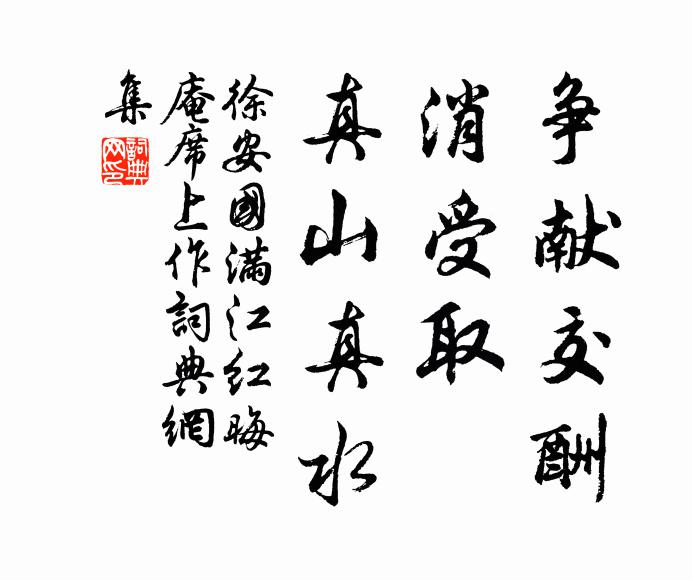 争献交酬
消受取
真山真水
徐安國满江红晦
庵席上作詞典網
集
詞典
网印